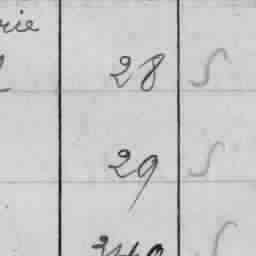 rie
28 S
29 S